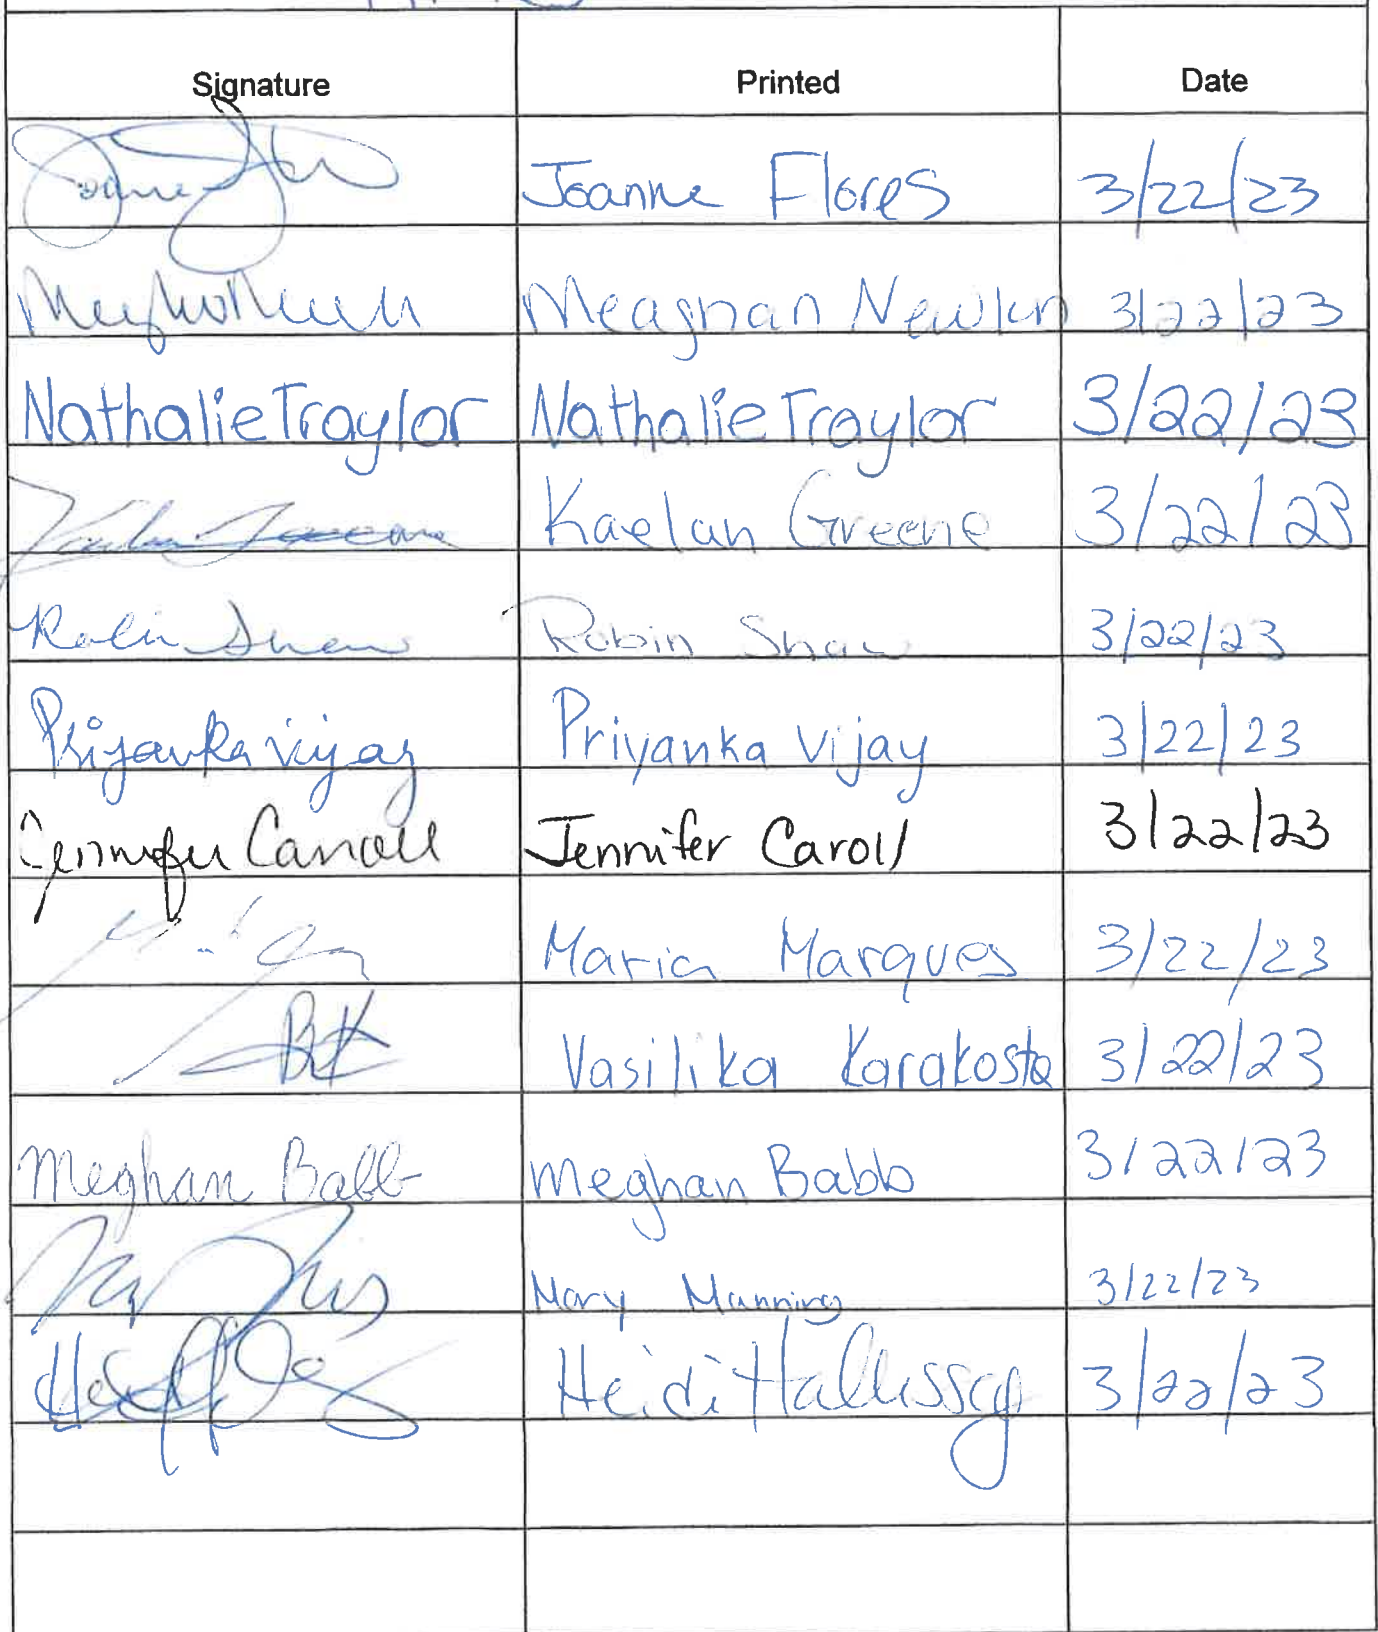 Signature Printed Date
Joanne Flores 3/22/23
Meaghan Newlin 3/22/23
Nathalie Traylor Nathalie Traylor 3/22/23
Kaelan Greene 3/22/23
Robin Shaw Robin Shaw 3/22/23
Priyanka Vijay Priyanka Vijay 3/22/23
Jennifer Carroll Jennifer Caroll 3/22/23
Maria Marques 3/22/23
Vasilika Karakosta 3/22/23
Meghan Babb Meghan Babb 3/22/23
Mary Manning 3/22/23
Heidi 3/22/23